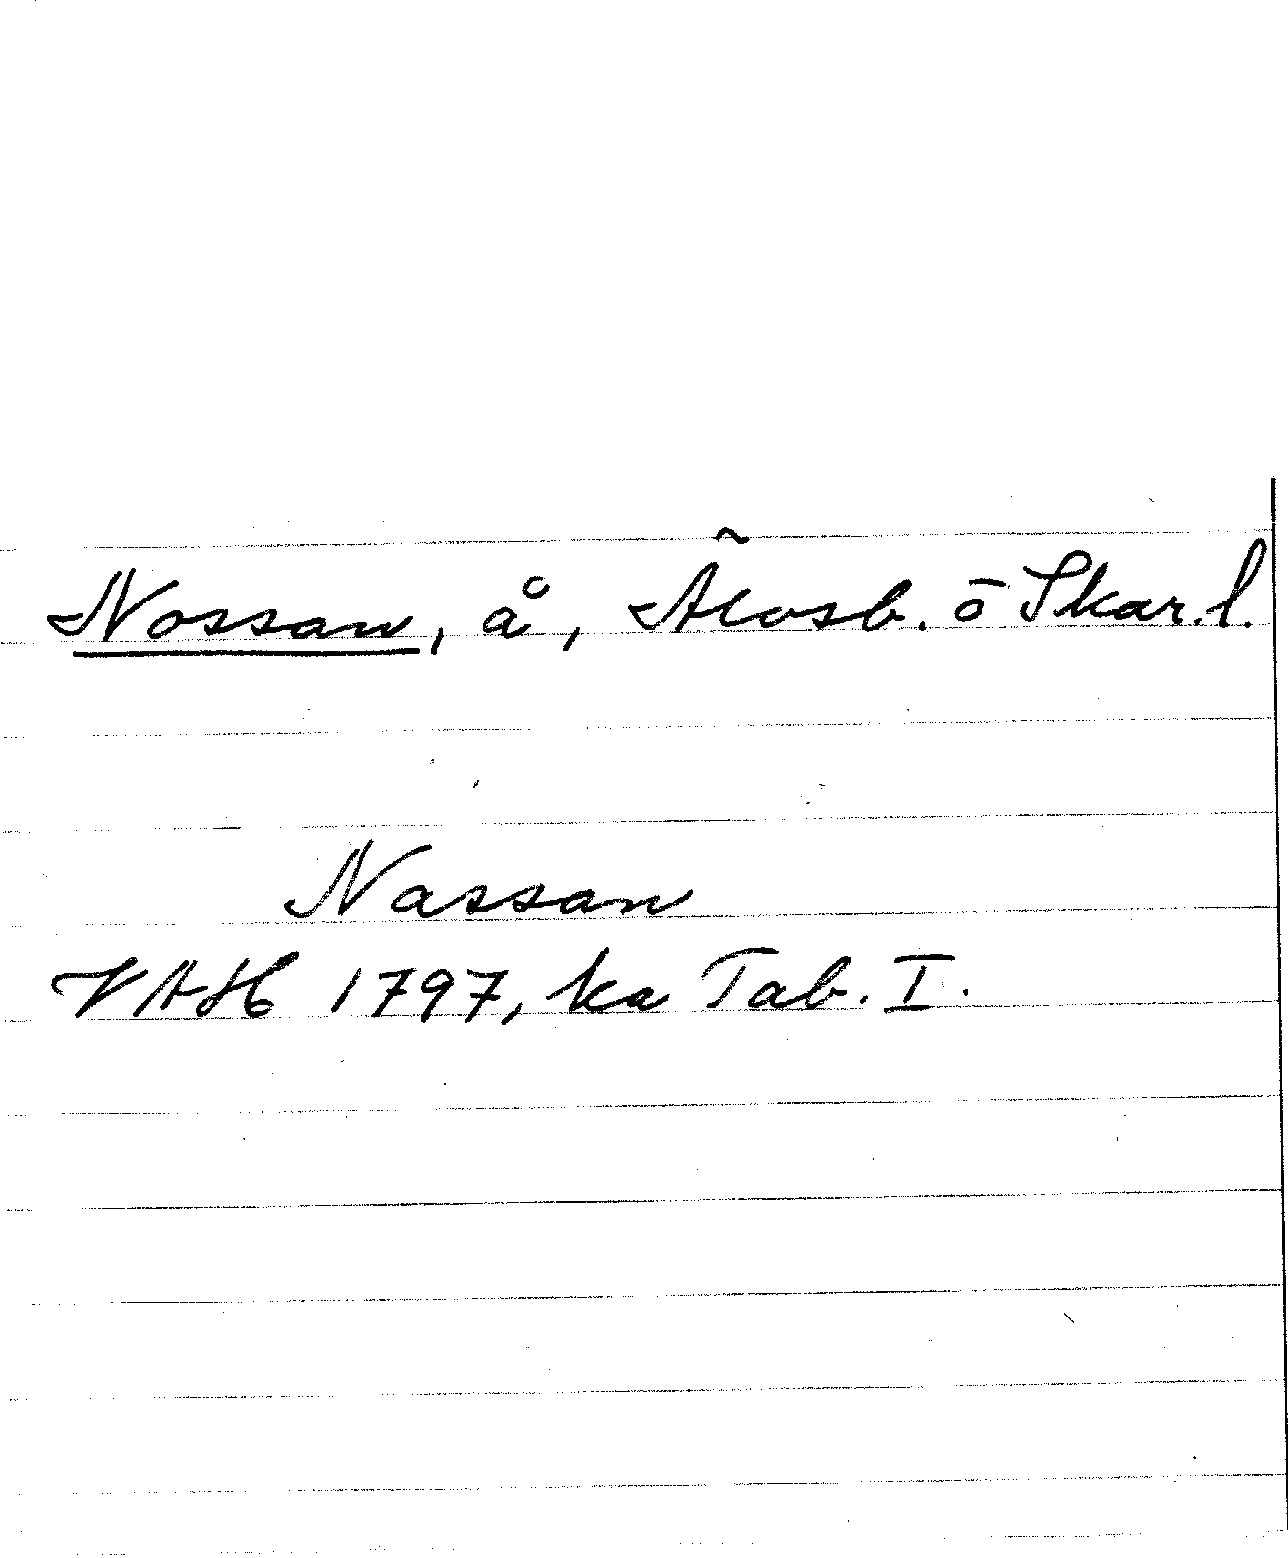 Nossan, å, Älvsb. o Skar. l.
Nassan
VAH 1797, ka Tab. I.